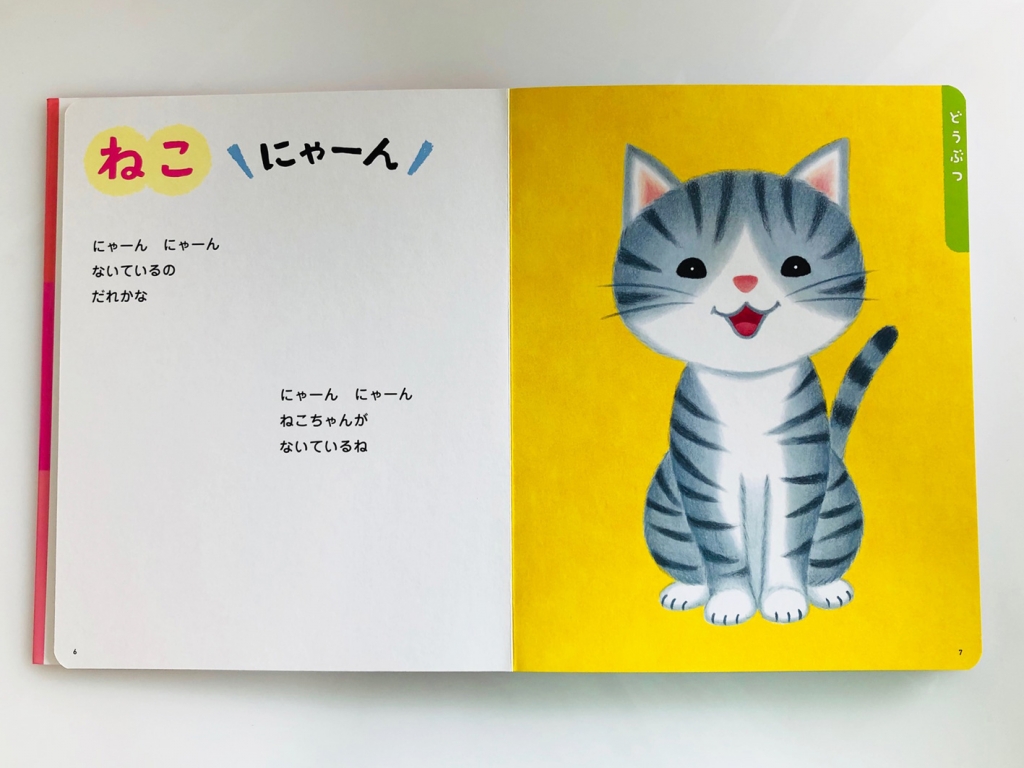 ねこ
にゃーん
にゃーん　にゃーん
ないているの
だれかな
にゃーん　にゃーん
ねこちゃんが
ないているね
6
どうぶつ
7